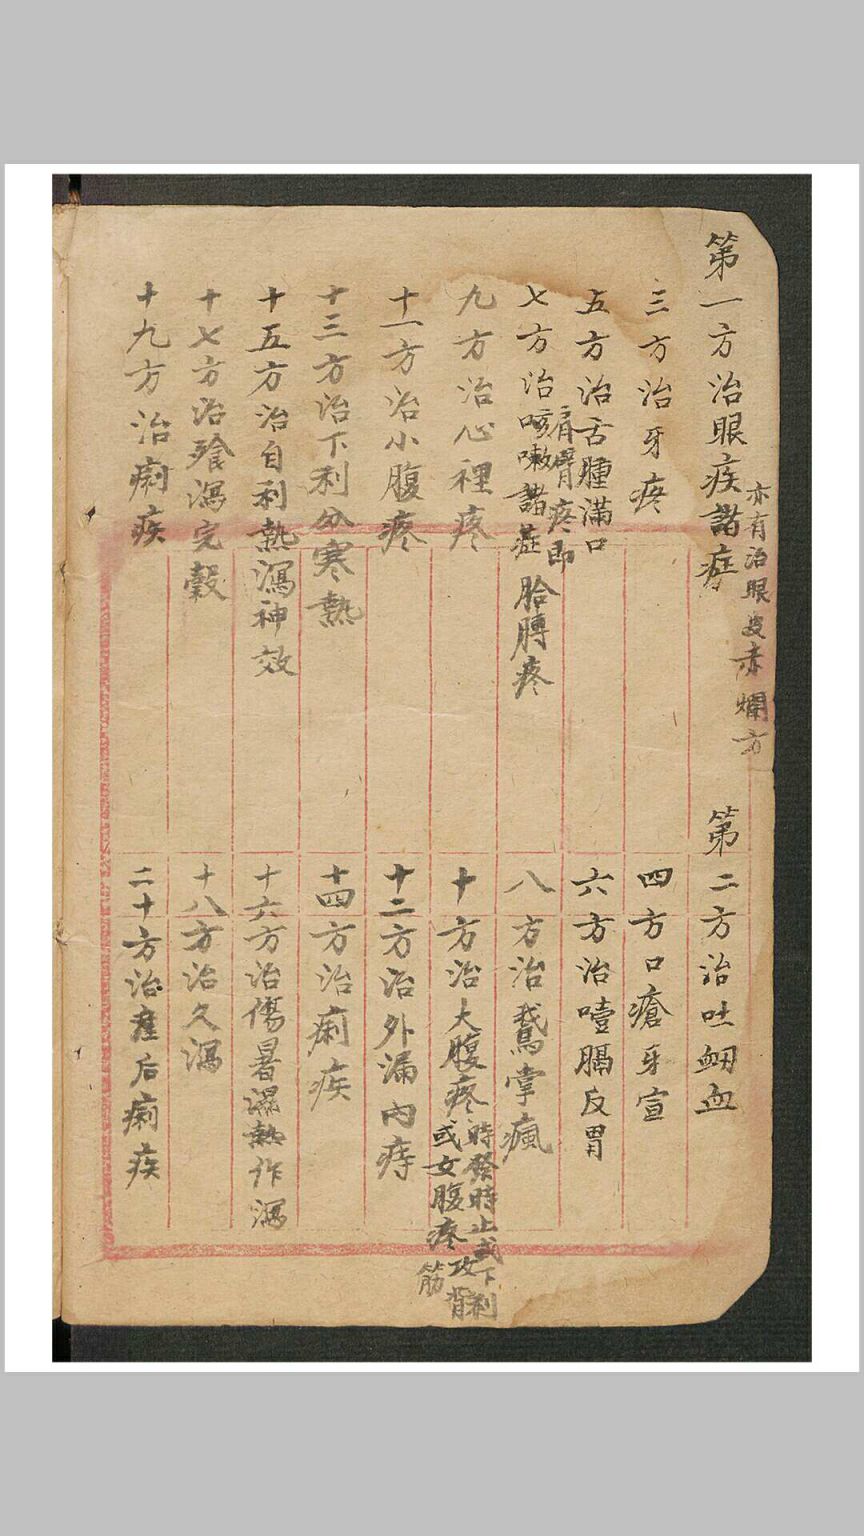 第一方治眼疾諸症
亦有治眼皮赤爛方
第二方治吐衂血
三方治牙疼
四方口瘡牙宣
五方治舌腫滿口
六方治噎膈反胃
七方治咳嗽諸症
肩臂疼即
胳膊疼
八方治鵝掌瘋
九方治心裡疼
十方治大腹疼
時發時止或下利
或女腹疼攻背
筋
十一方治小腹疼
十二方治外漏內痔
十三方治下利分寒熱
十四方治痢疾
十五方治自利熱瀉神效
十六方治傷暑濕熱作瀉
十七方治飱瀉完穀
十八方治久瀉
十九方治痢疾
二十方治產后痢疾